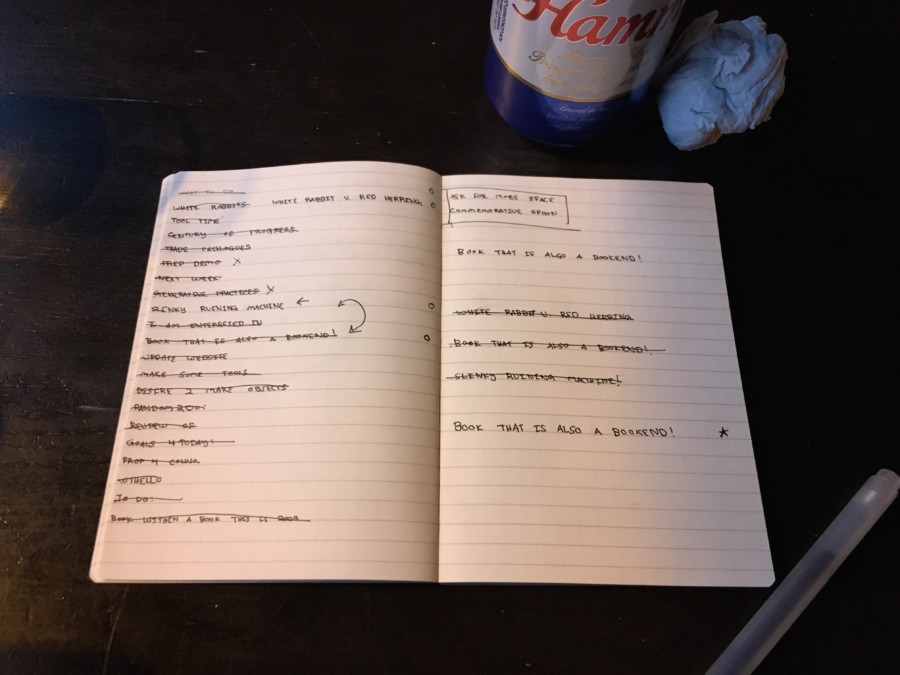 Hamm
WHAT TO DO
WHITE RABBITS WHITE RABBIT V. RED HERRING
TOOL TIME
CENTURY OF PROGRESS
TRADE CATALOGUES
PREP DEMO X
NEXT WEEK
GENERATIVE PRACTICES X
SLINKY RUINING MACHINE ←
I AM INTERESTED IN
BOOK THAT IS ALSO A BOOKEND!
UPDATE WEBSITE
MAKE SOME TOOLS
DESIRE 2 MAKE OBJECTS
REVIEW OF
GOALS 4 TODAY:
OTHELLO
TO DO:
BOOK WITHIN A BOOK THIS IS GOOD
ASK FOR MORE SPACE
COMMEMORATIVE SPOON
BOOK THAT IS ALSO A BOOKEND!
WHITE RABBIT V. RED HERRING
BOOK THAT IS ALSO A BOOKEND!
SLINKY RUINING MACHINE!
BOOK THAT IS ALSO A BOOKEND! *